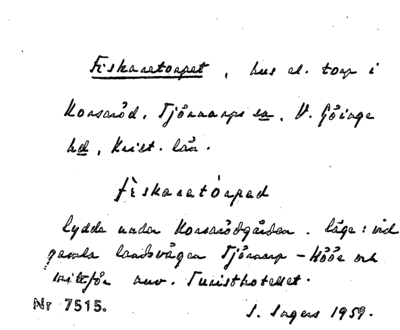 Fiskaretorpet, hus el. torp i
Korsaröd, Tjörnarps sn, V. Göinge
hd, Krist. län.
fìskaretórped
lydde under Korsarödgården. läge: vid
gamla landsvägen Tjörnarp - Höör och
mittför nuv. Turisthotellet.
Nr 7515.
I. Ingers 1959.